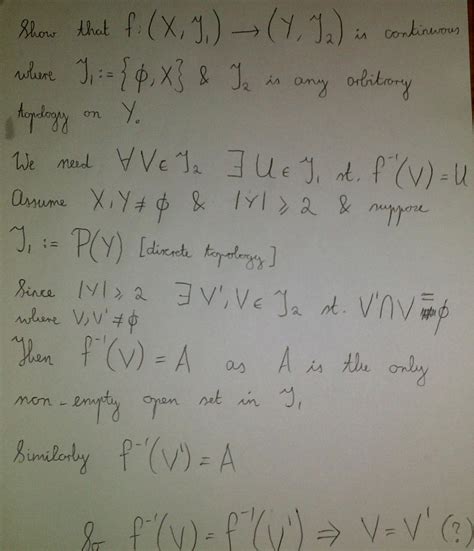 Show that f: (X, 𝒯₁) → (Y, 𝒯₂) is continuous
where 𝒯₁ := {ϕ, X} & 𝒯₂ is any arbitrary
topology on Y.
We need ∀V∈𝒯₂ ∃U∈𝒯₁ st. f⁻¹(V) = U
Assume X,Y ≠ ϕ & |Y| ⩾ 2 & suppose
𝒯₁ := P(Y) [discrete topology]
Since |Y| ⩾ 2 ∃ V', V ∈ 𝒯₂ st. V'∩V = ϕ
where V,V' ≠ ϕ
Then f⁻¹(V) = A as A is the only
non-empty open set in 𝒯₁
Similarly f⁻¹(V') = A
So f⁻¹(V) = f⁻¹(V') ⇒ V = V' (?)